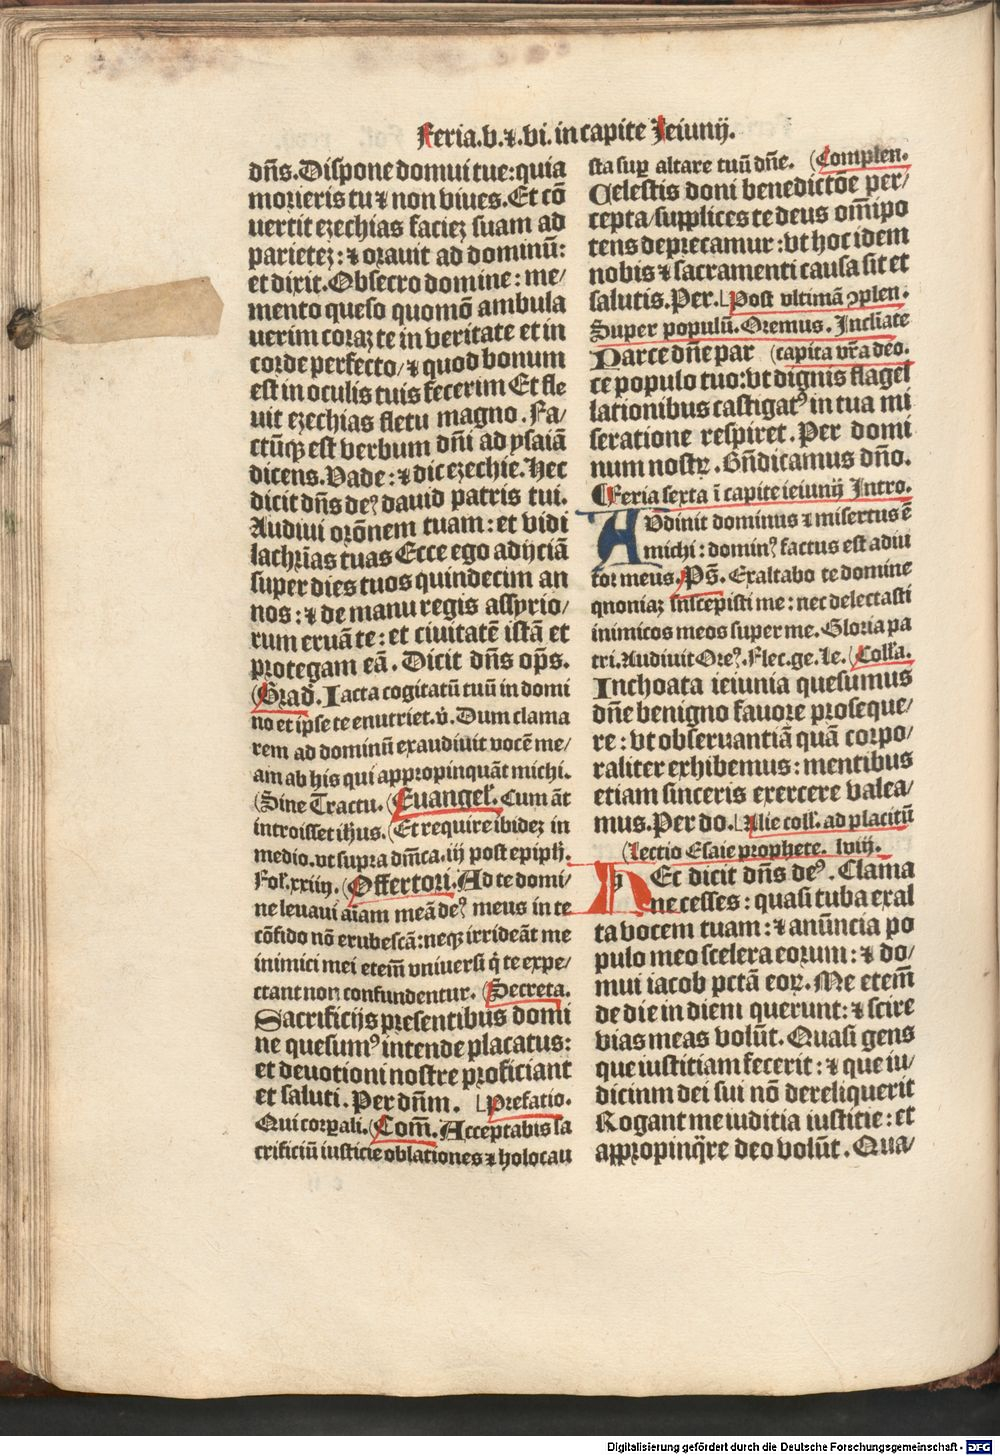 Feria.v.⁊.vi. in capite Jeiunij.
dn̄s. Dispone domui tue: quia
morieris tu ⁊ non viues. Et cō
uertit ezechias faciez suam ad
parietez: ⁊ orauit ad dominū:
et dixit. Obsecro domine: me/
mento queso quomō ambula
uerim coraz te in veritate et in
corde perfecto/ ⁊ quod bonum
est in oculis tuis fecerim Et fle
uit ezechias fletu magno. Fa/
ctūqꝫ est verbum dn̄i ad ysaiā
dicens. Vade: ⁊ dic ezechie. Hec
dicit dn̄s deꝰ dauid patris tui.
Audiui orōnem tuam: et vidi
lachrīas tuas Ecce ego adijciā
super dies tuos quindecim an
nos: ⁊ de manu regis assyrio/
rum eruā te: et ciuitatē istā et
protegam eā. Dicit dn̄s op̄s.
(Grad̄. Iacta cogitatū tuū in domi
no et ipse te enutriet. v̄. Dum clama
rem ad dominū exaudiuit vocē me/
am ab his qui appropinquāt michi.
(Sine Tractu. (Euangel̄. Cum āt
introisset ih̄us. (Et require ibidez in
medio. vt supra dn̄ica. iij post epiph̄.
Fol̄. xxiiij. (Offertori. Ad te domi/
ne leuaui aīam meā deꝰ meus in te
cōfido nō erubescā: neqꝫ irrideāt me
inimici mei etem̄ vniuersi q̇ te expe/
ctant non confundentur. (Secreta.
Sacrificijs presentibus domi
ne quesumꝰ intende placatus:
et deuotioni nostre proficiant
et saluti. Per dn̄m. └Prefatio.
Qui corꝑali. (Com̄. Acceptabis sa
crificiū iusticie oblationes ⁊ holocau
sta suꝑ altare tuū dn̄e. (Complen.
Celestis doni benedictōe per/
cepta/ supplices te deus om̄ipo
tens deprecamur: vt hoc idem
nobis ⁊ sacramenti causa sit et
salutis. Per. └Post vltimā ↄplen.
Super populū. Oremus. Inclīate
Parce dn̄e par (capita vr̄a deo.
ce populo tuo: vt dignis flagel
lationibus castigatꝰ in tua mi
seratione respiret. Per domi
num nostꝝ. Bn̄dicamus dn̄o.
¶Feria sexta ī capite ieiunij Intro.
AVdinit dominus ⁊ misertus ē
michi: dominꝰ factus est adiu
tor meus. Ps̄. Exaltabo te domine
qnoniaz suscepisti me: nec delectasti
inimicos meos super me. Gloria pa
tri. Audiuit Oreꝰ. Flec. ge. Le. (Coll̄a.
Inchoata ieiunia quesumus
dn̄e benigno fauore proseque/
re: vt obseruantiā quā corpo/
raliter exhibemus: mentibus
etiam sinceris exercere valea/
mus. Per do. └Alie coll̄. ad placitū
(Lectio Esaie prophete. lviij.
HEc dicit dn̄s deꝰ. Clama
ne cesses: quasi tuba exal
ta vocem tuam: ⁊ anūncia po
pulo meo scelera eorum: ⁊ do/
mui iacob pctā eoꝝ. Me etem̄
de die in diem querunt: ⁊ scire
vias meas volūt. Quasi gens
que iustitiam fecerit: ⁊ que iu/
dicium dei sui nō dereliquerit
Rogant me iuditia iusticie: et
appropinq̄re deo volūt. Qua/
Digitalisierung gefördert durch die Deutsche Forschungsgemeinschaft - DFG